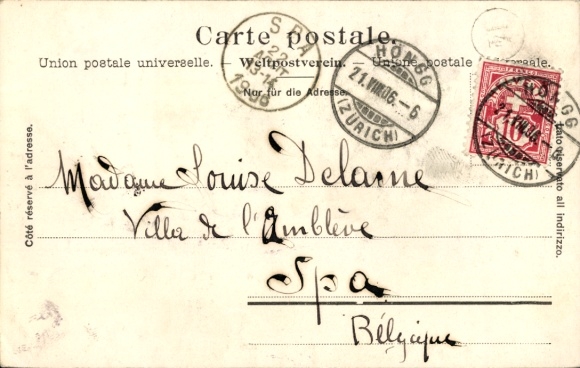 Carte postale.
Union postale universelle. — Weltpostverein. — Unione postale universale.
Nur für die Adresse.
SPA
22
AOUT
13-14
1906
HÖNGG
21.VIII.06.-6
(ZÜRICH)
HÖNGG
21.VIII.06.
(ZÜRICH)
10
Côté réservé à l'adresse.
lato riservato all indirizzo.
Madame Louise Delarne
Villa de l'Amblève
Spa
Bélgique